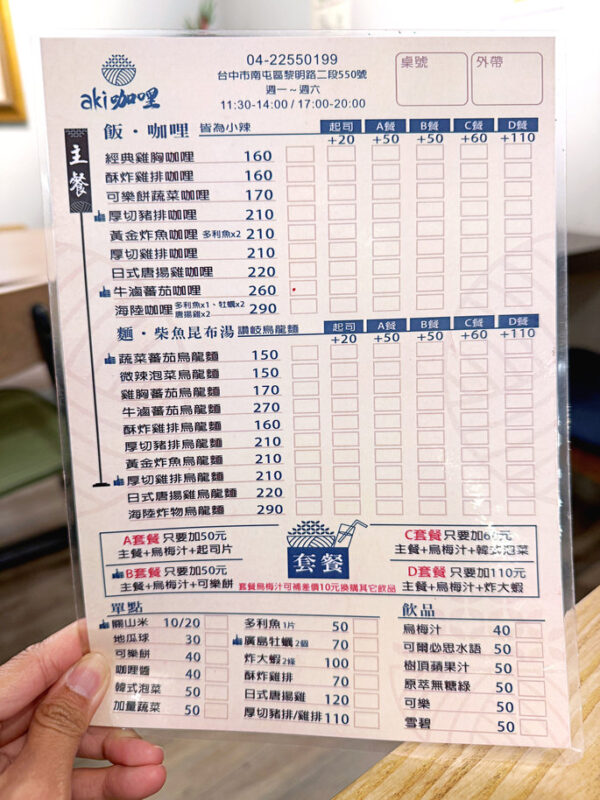 aki咖哩
04-22550199
台中市南屯區黎明路二段550號
週一～週六
11:30-14:00 / 17:00-20:00
桌號
外帶
主餐
飯・咖哩 皆為小辣 起司 A餐 B餐 C餐 D餐
+20 +50 +50 +60 +110
經典雞胸咖哩 160
酥炸雞排咖哩 160
可樂餅蔬菜咖哩 170
厚切豬排咖哩 210
黃金炸魚咖哩 多利魚x2 210
厚切雞排咖哩 210
日式唐揚雞咖哩 220
牛滷蕃茄咖哩 260
海陸咖哩 多利魚x1、牡蠣x2 唐揚雞x2 290
麵・柴魚昆布湯 讚岐烏龍麵 起司 A餐 B餐 C餐 D餐
+20 +50 +50 +60 +110
蔬菜蕃茄烏龍麵 150
微辣泡菜烏龍麵 150
雞胸蕃茄烏龍麵 170
牛滷蕃茄烏龍麵 270
酥炸雞排烏龍麵 160
厚切豬排烏龍麵 210
黃金炸魚烏龍麵 210
厚切雞排烏龍麵 210
日式唐揚雞烏龍麵 220
海陸炸物烏龍麵 290
A套餐 只要加50元
主餐+烏梅汁+起司片
B套餐 只要加50元
主餐+烏梅汁+可樂餅
套餐
C套餐 只要加60元
主餐+烏梅汁+韓式泡菜
D套餐 只要加110元
主餐+烏梅汁+炸大蝦
套餐烏梅汁可補差價10元換購其它飲品
單點
關山米 10/20
地瓜球 30
可樂餅 40
咖哩醬 40
韓式泡菜 50
加量蔬菜 50
多利魚1片 50
廣島牡蠣2個 70
炸大蝦2條 100
酥炸雞排 70
日式唐揚雞 120
厚切豬排/雞排 110
飲品
烏梅汁 40
可爾必思水語 50
樹頂蘋果汁 50
原萃無糖綠 50
可樂 50
雪碧 50